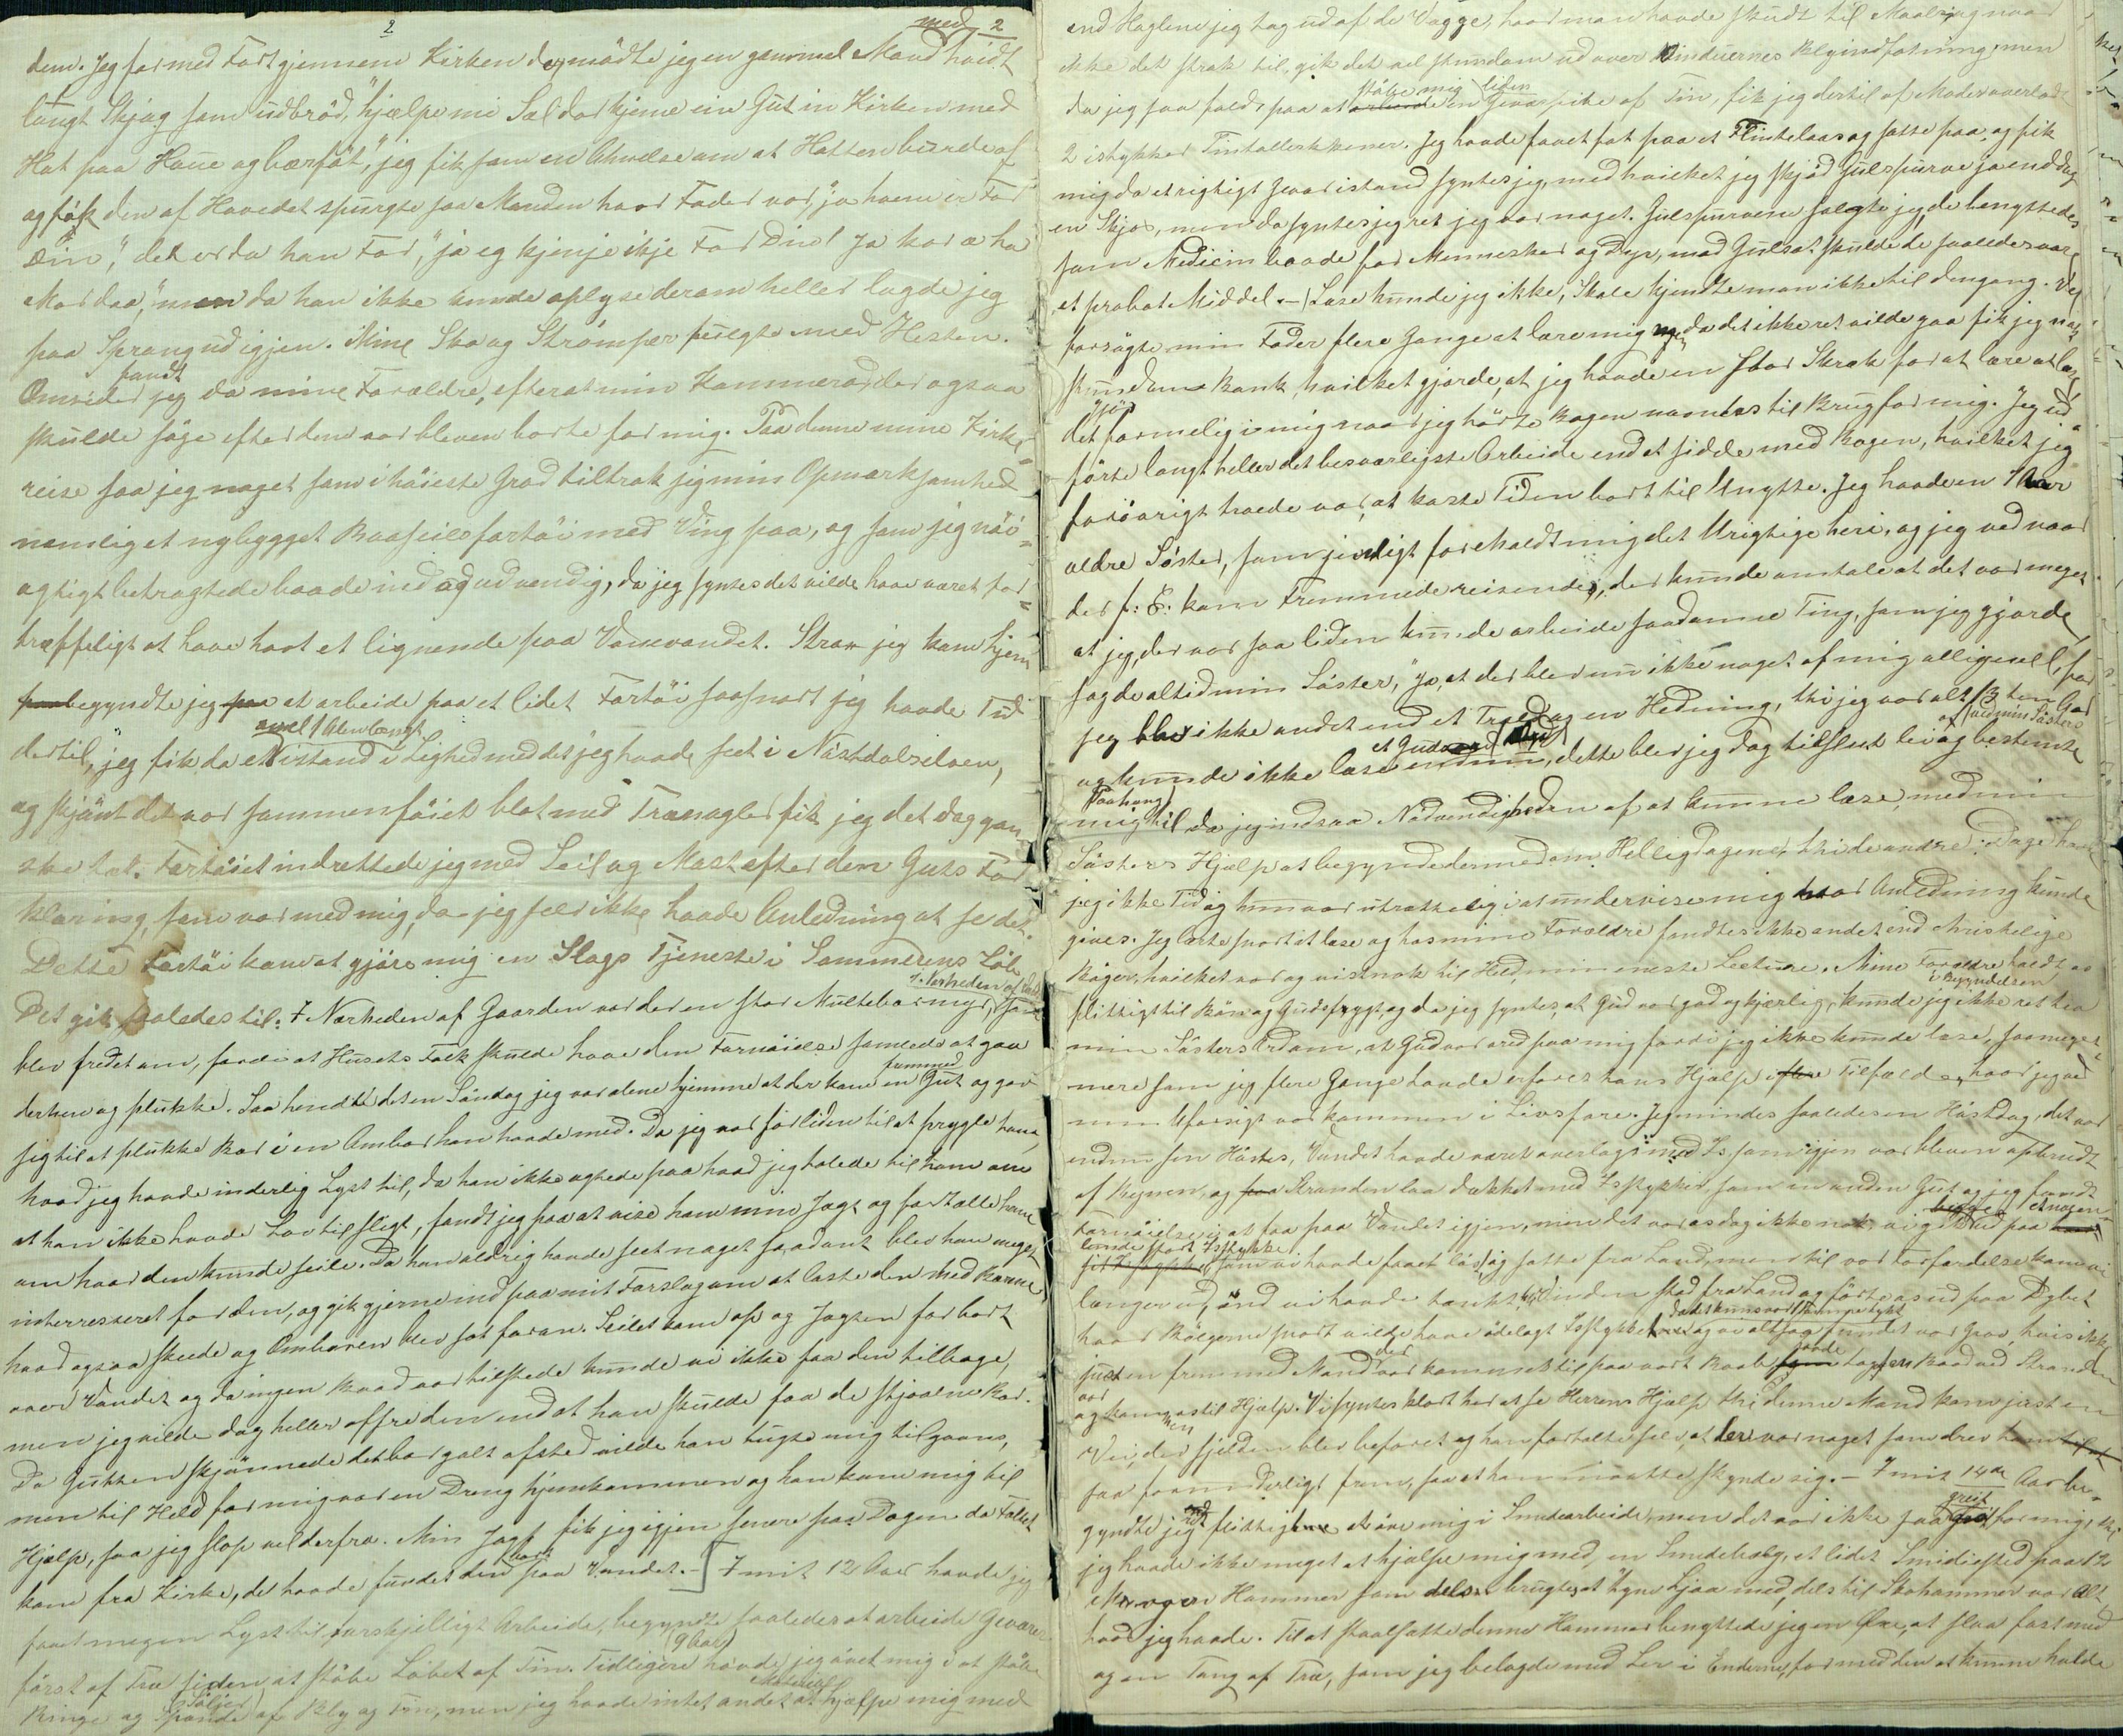 2
med 2
dem. Jeg for med Fart gjennem Kirken der mödte jeg en gammel Mand hvidt
langt Skjæg som udbröd, "hjælpe mi Sæl dar kjeme ein Gut in Kirken med
Hat paa Haue og bærföt," jeg fik som en Ahnelse om at Hatten burde af
og fök den af Hovedet spurgte saa Manden hvor Fader var, "ja hvem er Far
Din", "det er da han Far", "ja eg kjenje ikje Far Din! Ja kor æ ha
Mor daa," men da han ikke kunde oplyse derom heller lagde jeg
paa Sprang ud igjen. Mine Sko og Strömper fulgte med Hesten.
fandt
Omsider jeg da mine Forældre, efterat min Kammerad der ogsaa
skulde söge efter dem var bleven borte for mig. Paa denne min Kirke-
reise saa jeg noget som i höieste Grad tiltrak sig min Opmærksomhed
nemlig et nybygget Raaseilsfartöi med Ving paa, og som jeg nöi-
agtigt betragtede baade ind og udvendig, da jeg syntes det vilde have været for-
træffeligt at have havt et lignende paa Vand­et. Strax jeg kom hjem
begyndte jeg at arbeide paa et lidet Fartöi saasnart jeg havde Tid
1 Alen langt
dertil, jeg fik da et istand i Lighed med det jeg havde seet i
og skjönt det var sammenföiet blot med Trænagler fik jeg det dog gan-
ske tæt. Fartöiet indrettede jeg med Seil og Mast efter den Guts For-
klaring, som var med mig, da jeg selv ikke havde Anledning at se det.
Dette Fartöi kom at gjöre mig en Slags Tjeneste i Sommerens Löb.
I Nærheden af
Det gik saaledes til: I Nærheden af Gaarden var der en stor Multebærmyr, som
blev fredet om, fordi at Husets Folk skulde have den Fornöielse samlede at gaa
fremmed
derhen og plukke. Saa hendte det en Söndag jeg var alene hjemme at der kom en Gut og gav
sig til at plukke Bær i en Ambar han havde med. Da jeg var for liden til at prygle ham,
hvad jeg havde inderlig Lyst til, da han ikke agtede paa hvad jeg talede til ham om
at han ikke havde Lov til sligt, fandt jeg paa at vise ham min Jagt og fortælle ham
om hvor den kunde seile. Da han aldrig havde seet noget saadant blev han meget
interresseret for den, og gik gjerne ind paa mit Forslag om at laste den med Bærene,
hvad ogsaa skede og Ambaren blev sat foran. Seilet kom op og Jagten for bort
over Vandet og da ingen Baad var tilstede kunde vi ikke faa den tilbage,
men jeg vilde dog heller offre den end at han skulde faa de stjaalne Bær.
Da Gutten skjönnede det bar galt afsted vilde han tugte mig tilgavns,
men til Held for mig var en Dreng hjemkommen og han kom mig til
Hjælp, saa jeg slap vel derfra. Min Jagt fik jeg igjen senere paa Dagen da Folket
kom fra Kirke, de havde fundet den paa Vandet. – I mit 12 Aar havde jeg
faaet megen Lyst til forskjelligt Arbeide, begyndte saaledes at arbeide Geværer
först af Træ siden at stöbe Löbet af Tin. Tidligere (9 Aar) havde jeg övet mig i at stöbe
Ringe og Spænde af Bly og Tin, men jeg havde intet andet at hjælpe mig med
end Haglene jeg tog ud af de Vægge, hvor man havde skudt til Maals og naar
ikke det strak til, gik det vel stundom ud over Vinduernes Blyindfatning, men
støbe mig liden
da jeg saa faldt paa at en Geværpibe af Tin, fik jeg dertil af Moder overladt
2 istykker Tintallerkkener. Jeg havde faaet fat paa et Flintelaas og satte paa og fik
mig da et rigtigt Gevær istand syntes jeg, med hvilket jeg skjöd Gulspurve ja endog
en Skjor, men da syntes jeg ret jeg var noget. Gulspurvene solgte jeg, de benyttedes
som Medicin baade for Mennesker og Dyr, mod Gulsot skulde de saaledes være
et probat Middel. – Læse kunde jeg ikke, Skole kjendte man ikke til dengang. Vel
forsögte min Fader flere Gange at lære mig men da det ikke ret vilde gaa fik jeg nog
stundom Bank, hvilket gjorde, at jeg havde en stor Skræk for at lære at læse,
det gjös formelig i mig naar jeg hörte Bogen nævntes til Brug for mig. Jeg ud-
förte langt heller det besværligste Arbeide end at sidde med Bogen, hvilket jeg
foröврigt troede var, at kaste Tiden bort til Unytte. Jeg havde en
ældre Söster, som jevnligt foreholdt mig det Urigtige heri, og jeg ved naar
der f. Ex. kom Fremmede reisendes, der kunde omtale at det var meget
at jeg, der var saa liden kunde arbeide saadanne Ting, som jeg gjorde,
sagde altid min Söster, "Ja, at der blev nu ikke noget af mig alligevel, for
jeg blev ikke andet end et Trold og en Hedning, thi jeg var alt
og kunde ikke læse et Guds ord, dette blev jeg dog tilslut lei og bestemte
Paahang
mig til da jeg indsaa Nödvendigheden af at kunne læse, med min
Sösters Hjælp at begynde dermed om Helligdagene, thi de andre Dage havde
jeg ikke Tid og hun var utrættelig i at undervise mig hvor Anledning kunde
gives. Jeg lærte snart at læse og hos mine Forældre fandtes ikke andet end christelige
Böger, hvilket var og vistnok til Held, min meste Lecture. Mine Forældre holdt os
i Begyndelsen
flittigt til Bön og Gudsfrygt, og da jeg syntes, at Gud var god og kjærlig, kunde jeg ikke ret tro
min Sösters Ordom, at Gud var vred paa mig fordi jeg ikke kunde læse, saameget
mere som jeg flere Gange havde erfaret hans Hjælp i Tilfælde, hvor jeg ved
min Uforsigt var kommen i Livsfare. Jeg mindes saaledes en Höstdag, det var
endnu sen Höstes, Vandet havde været overlagt med Is, som igjen var bleven opbrudt
af Regnen, og Stranden laa dækket med Isstykker, som en anden Gut og jeg fandt
Fornöielse i at faa paa Vandet igjen, men det var os dog ikke nok, vi gik ud paa et nogen-
lunde stort Isstykke, som vi havde faaet lös, og satte fra Land, men til vor Forfærdelse kom vi
længer ud, end vi havde tænkt, Vinden stod fra Land og förte os ud paa Dybet
hvor Bölgerne snart vilde have ödelagt Isstykket, og vi altsaa fundet vor Grav, hvis ikke
just en fremmed Mand der var kommet til paa vort Raab havde tagen Baad ved Stranden
og kom os til Hjælp. Vi syntes klart her at se Herrens Hjælp thi denne Mand kom just en
Vei, der sjelden blev befaret og han fortalte selv, at der var noget som drev ham
saa forunderligt frem, saa at han maatte skynde sig. – I mit 14de Aar be-
greit
gyndte jeg flittig at öve mig i Smedarbeide, men det var ikke saa for mig, thi
jeg havde ikke meget at hjælpe mig med, en Smedebelg, et lidet Smidiested paa 1½
Mk. og en Hammer som dels brugtes at tyne Ljaa med, dels til Skohammer var alt,
hvad jeg havde. Til at staalsatte denne Hammer benyttede jeg en Öxe, at slaa fast med
og en Tang af Træ, som jeg belagde med Ler i Enderne, for med den at kunne holde